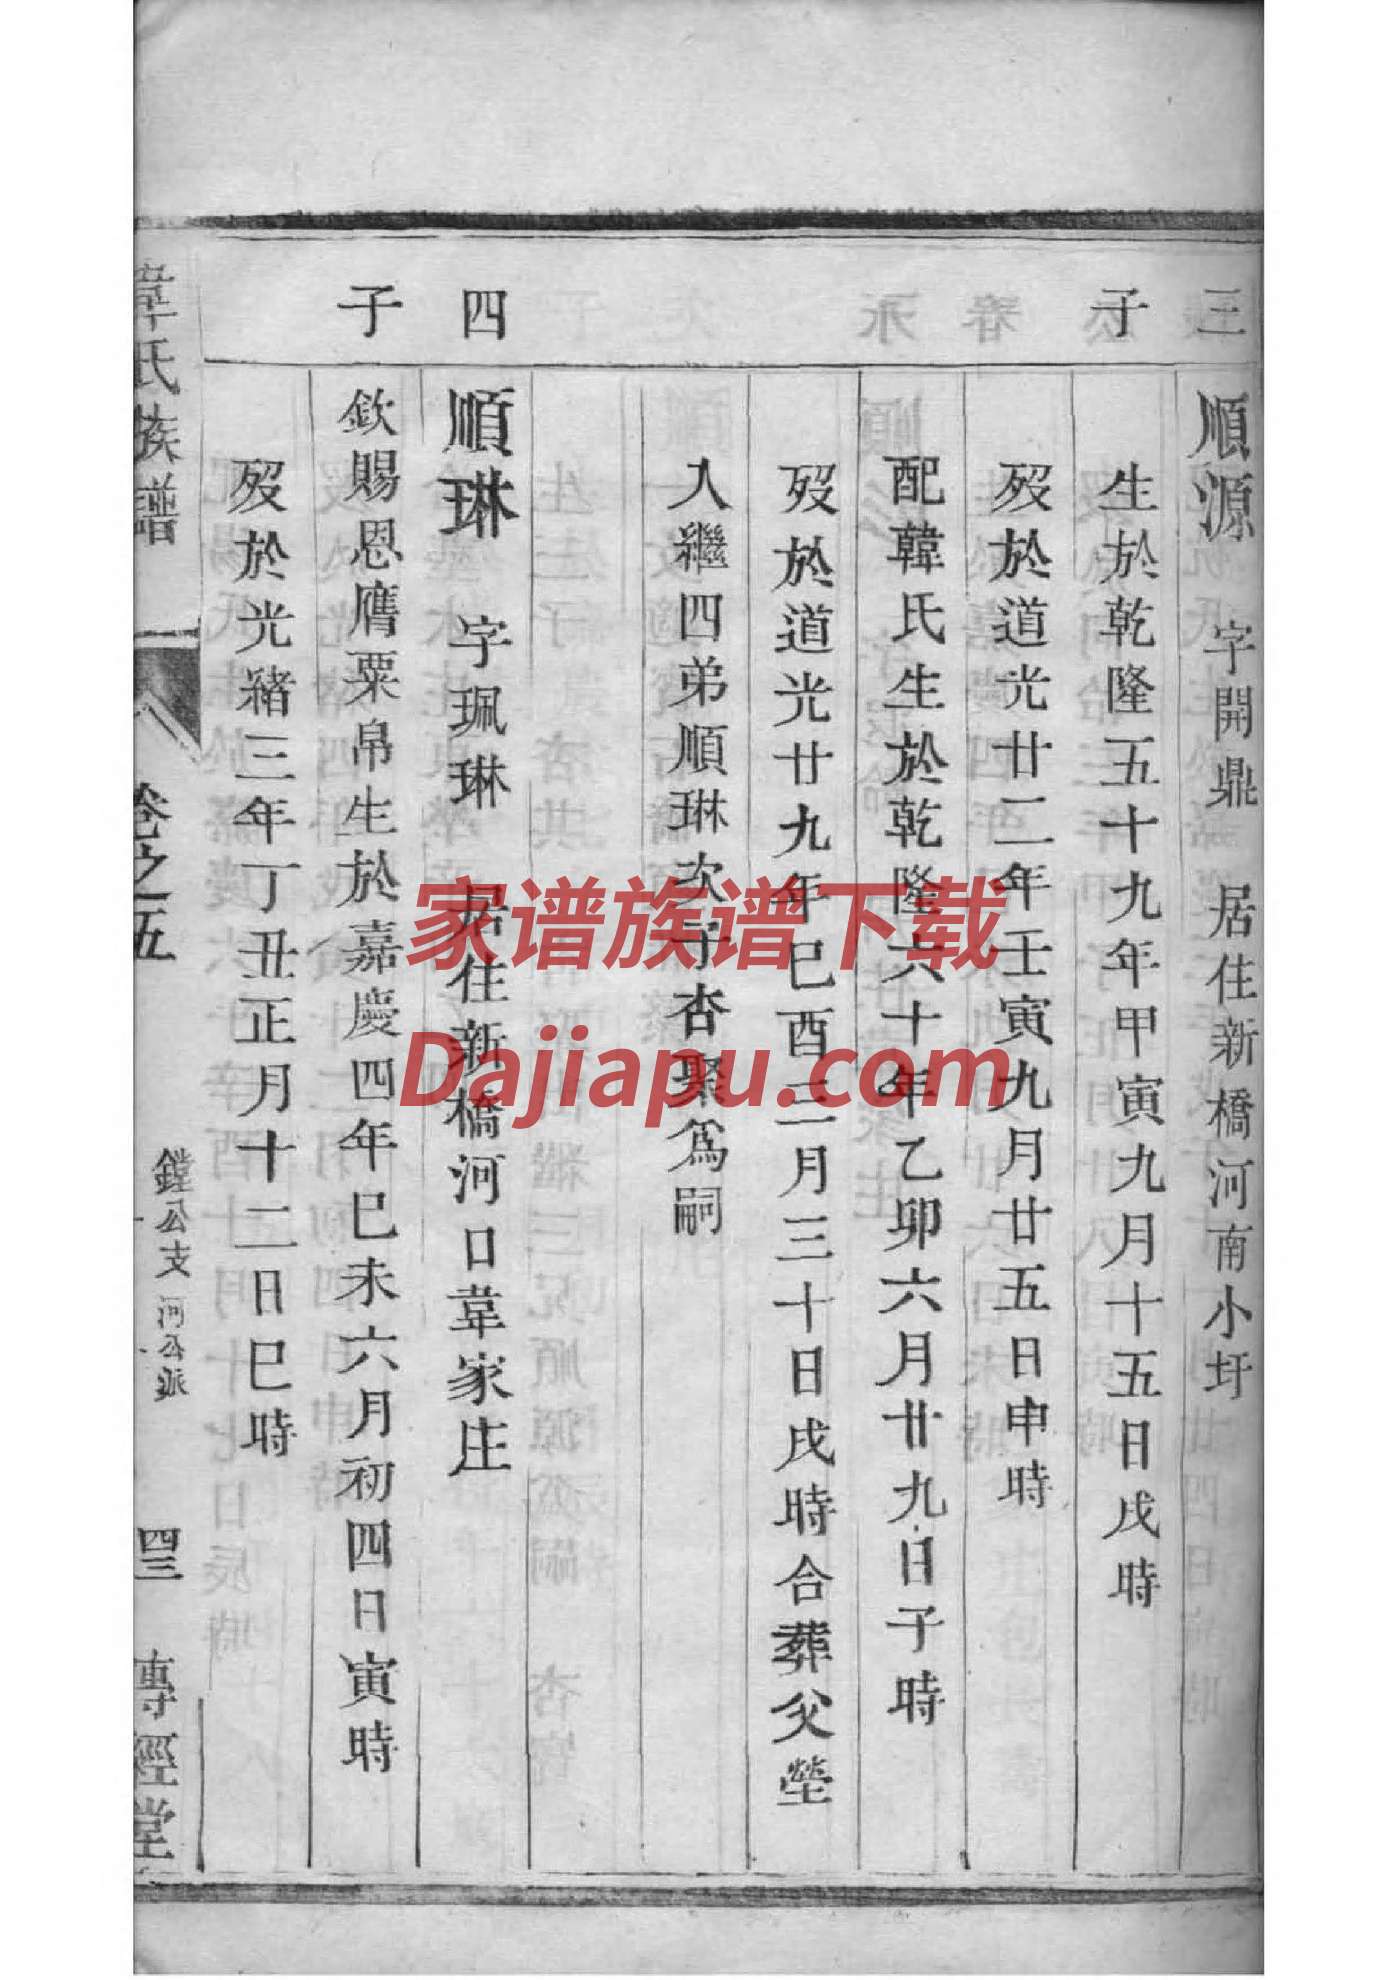 三
順源 字開鼎 居住新橋河南小圩
子
生於乾隆五十九年甲寅九月十五日戌時
歿於道光廿二年壬寅九月廿五日申時
配韓氏生於乾隆六十年乙卯六月廿九日子時
歿於道光廿九年巳酉三月三十日戌時合葬父塋
入繼四弟順琳次子杏聚爲嗣
四
順琳 字珮琳 居住新橋河口韋家庄
子
欽賜恩膺粟帛生於嘉慶四年巳未六月初四日寅時
歿於光緒三年丁丑正月十二日巳時
韋氏族譜
卷之五
鏜公支 河公派
四三
傳經堂
家谱族谱下载
Dajiapu.com